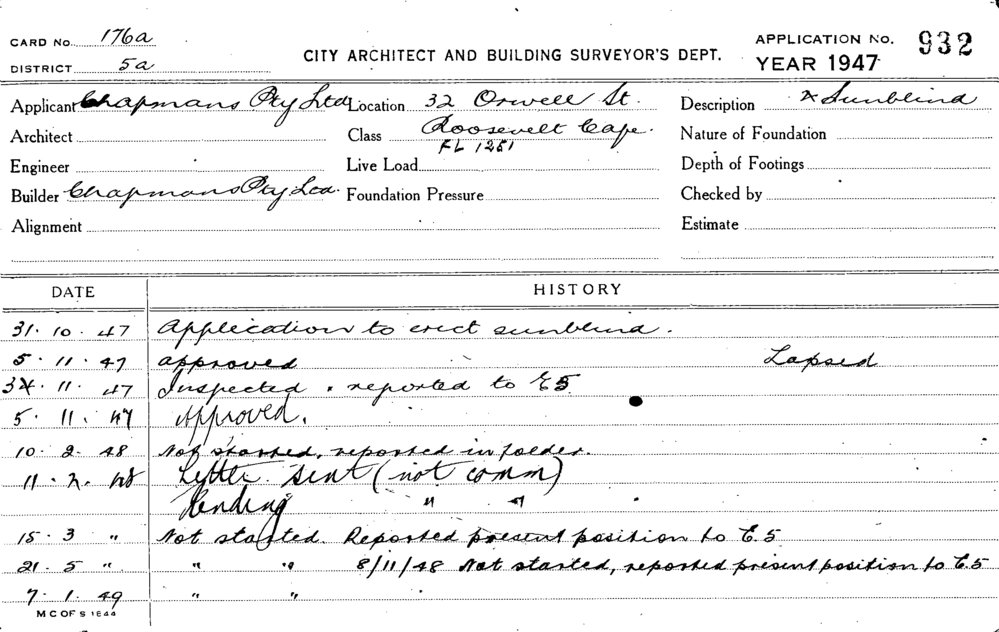 CARD No. 176a
DISTRICT 5a
CITY ARCHITECT AND BUILDING SURVEYOR'S DEPT.
APPLICATION No. 932
YEAR 1947
Applicant Chapmans Pty Ltd Location 32 Orwell St. Description Sunblind
Architect Class Roosevelt Cafe. Nature of Foundation
FL 1251
Engineer Live Load Depth of Footings
Builder Chapmans Pty Ltd. Foundation Pressure Checked by
Alignment Estimate
DATE HISTORY
31. 10. 47 Application to erect sunblind.
5. 11. 47 approved Lapsed
11. 47 Inspected & reported to E5
5. 11. 47 Approved.
10. 2. 48 Not started, reported in folder.
11. 2. 48 Letter sent (not comm)
Pending " "
15. 3 " Not started. Reported present position to E.5
21. 5 " " " 8/11/48 Not started, reported present position to E.5
7. 1. 49 " "
M C OF S 1844